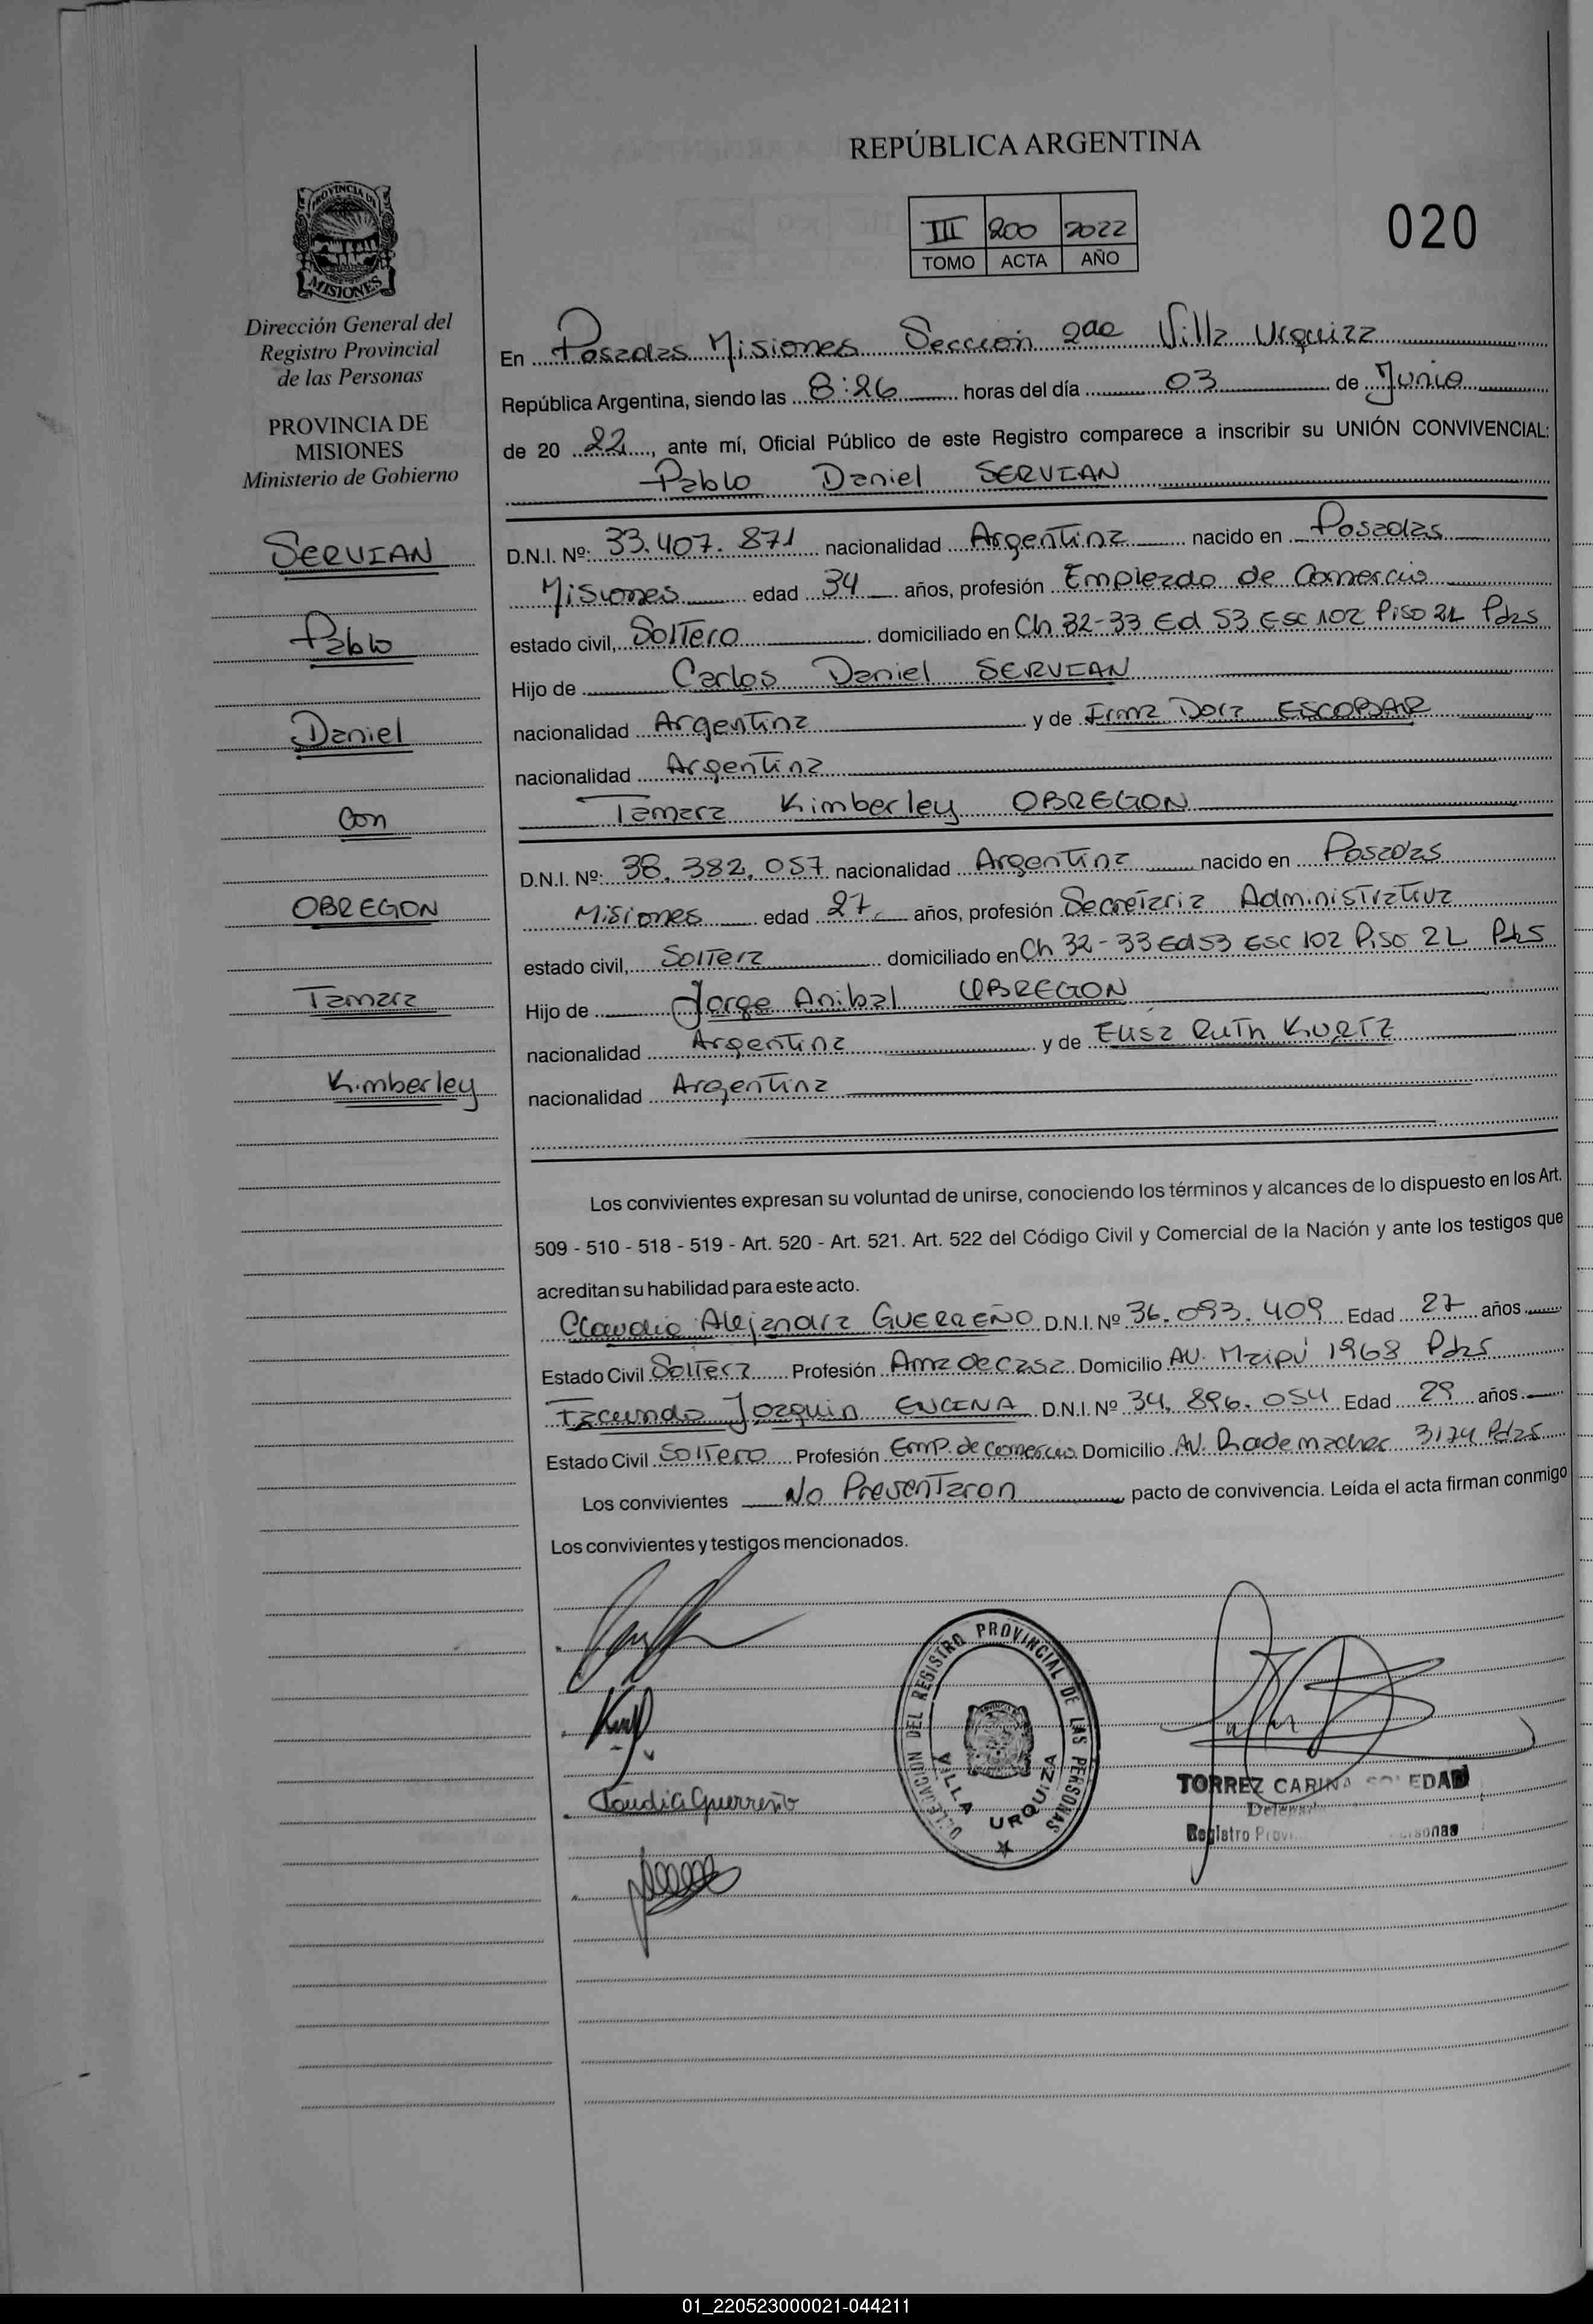 REPÚBLICA ARGENTINA
III 200 2022
TOMO ACTA AÑO
020
PROVINCIA DE
MISIONES
Dirección General del
Registro Provincial
de las Personas
PROVINCIA DE
MISIONES
Ministerio de Gobierno
SERVIAN
Pablo
Daniel
Con
OBREGON
Tamara
Kimberley
En Posadas Misiones Sección 2da Villa Urquiza
República Argentina, siendo las 8:26 horas del día 03 de Junio
de 20 22, ante mí, Oficial Público de este Registro comparece a inscribir su UNIÓN CONVIVENCIAL:
Pablo Daniel SERVIAN
D.N.I. Nº: 33.407.871 nacionalidad Argentina nacido en Posadas
Misiones edad 34 años, profesión Empleado de Comercio
estado civil, Soltero domiciliado en Ch 32-33 Ed 53 Esc 102 Piso 2L Pdas
Hijo de Carlos Daniel SERVIAN
nacionalidad Argentina y de Irma Dora ESCOBAR
nacionalidad Argentina
Tamara Kimberley OBREGON
D.N.I. Nº: 38.382.057 nacionalidad Argentina nacido en Posadas
Misiones edad 27 años, profesión Secretaria Administrativa
estado civil, Soltera domiciliado en Ch 32-33 Ed 53 Esc 102 Piso 2L Pdas
Hijo de Jorge Anibal OBREGON
nacionalidad Argentina y de Elisa Ruth KURTZ
nacionalidad Argentina
Los convivientes expresan su voluntad de unirse, conociendo los términos y alcances de lo dispuesto en los Art.
509 - 510 - 518 - 519 - Art. 520 - Art. 521. Art. 522 del Código Civil y Comercial de la Nación y ante los testigos que
acreditan su habilidad para este acto.
Claudia Alejandra GUERREÑO D.N.I. Nº 36.093.409 Edad 27 años
Estado Civil Soltera Profesión Ama de Casa Domicilio AV. Maipú 1968 Pdas
Facundo Joaquin ENCINA D.N.I. Nº 34.896.054 Edad 29 años.
Estado Civil Soltero Profesión Emp. de Comercio Domicilio AV. Rademacher 3174 Pdas
Los convivientes No Presentaron pacto de convivencia. Leída el acta firman conmigo
Los convivientes y testigos mencionados.
Claudia Guerreño
DELEGACIÓN DEL REGISTRO PROVINCIAL DE LAS PERSONAS
VILLA URQUIZA
TORREZ CARINA SOLEDAD
Registro
01_220523000021-044211